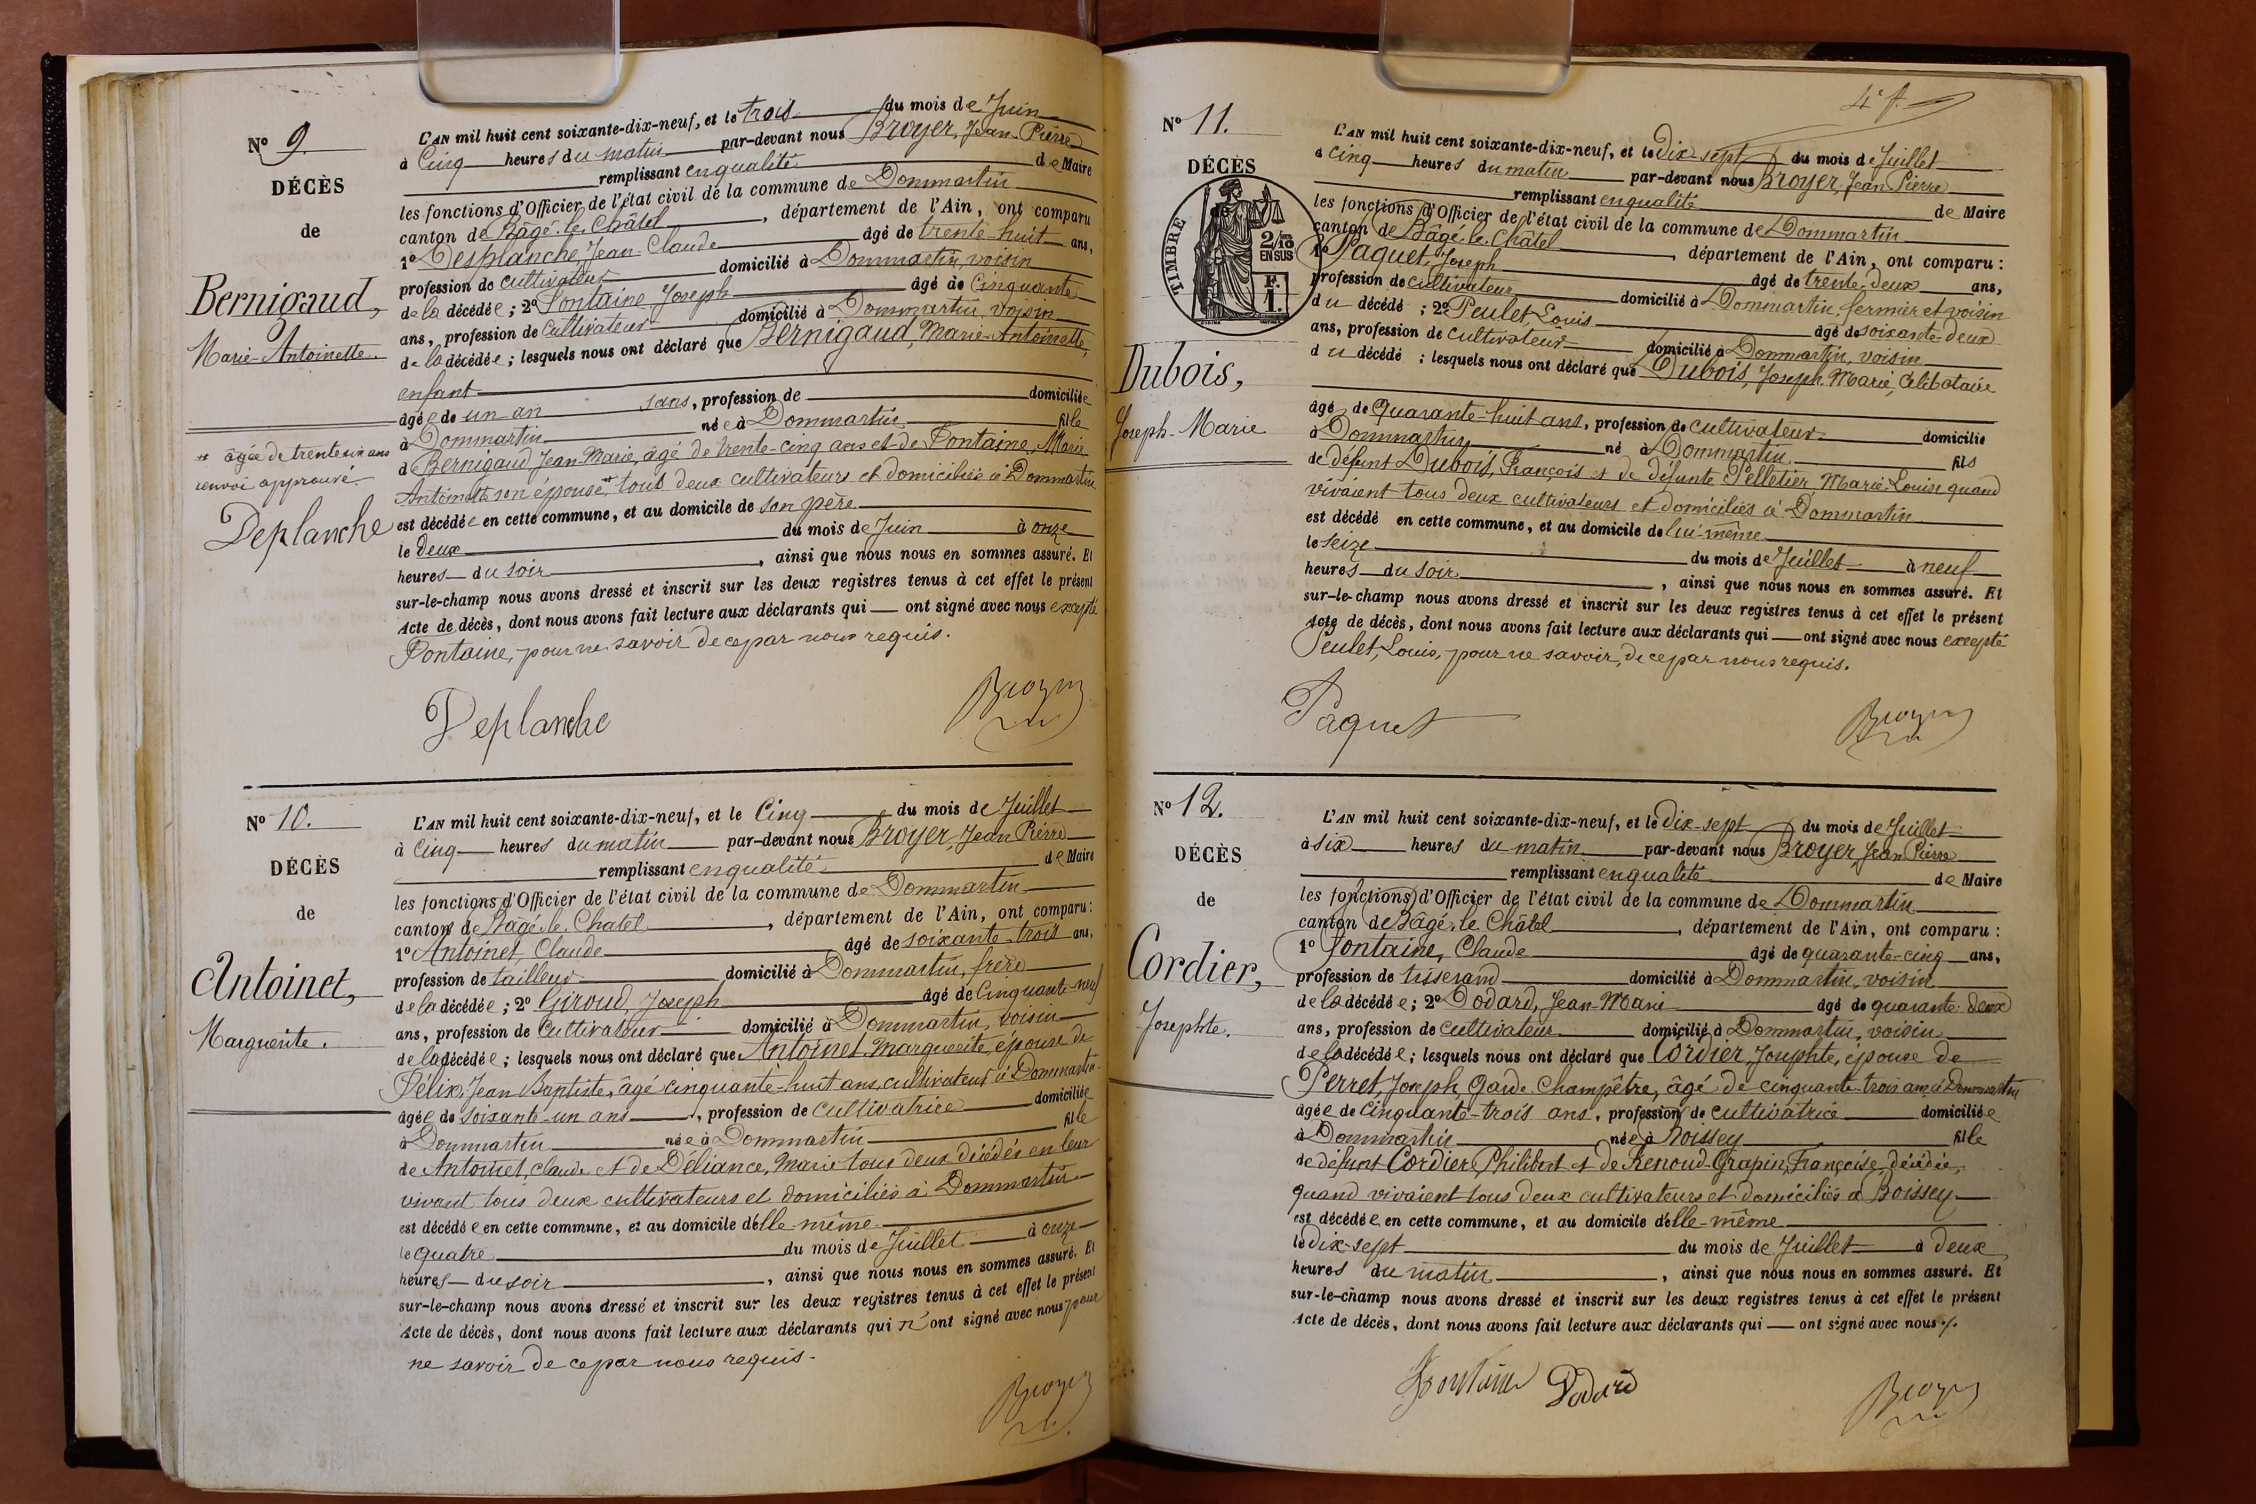 N° 9.
DÉCÈS
de
Bernigaud,
Marie-Antoinette.
* âgée de trente six ans
renvoi approuvé.
Deplanche
L'AN mil huit cent soixante-dix-neuf, et le trois du mois de Juin
à Cinq heures du matin par-devant nous Broyer, Jean-Pierre
remplissant en qualité de Maire
les fonctions d'Officier de l'état civil de la commune de Dommartin
canton de Bâgé-le-Châtel, département de l'Ain, ont comparu
1° Desplanche, Jean-Claude âgé de trente-huit ans,
profession de cultivateur domicilié à Dommartin, voisin
de la décédée ; 2° Fontaine Joseph âgé de Cinquante
ans, profession de Cultivateur domicilié à Dommartin, voisin
de la décédée ; lesquels nous ont déclaré que Bernigaud, Marie-Antoinette,
enfant
âgée de un an sans, profession de domiciliée
à Dommartin née à Dommartin fille
de Bernigaud Jean Marie, âgé de trente-cinq ans et de Fontaine, Marie
Antoinette son épouse* tous deux cultivateurs et domiciliés à Dommartin
est décédée en cette commune, et au domicile de son père
le deux du mois de Juin à onze
heures du soir, ainsi que nous nous en sommes assuré. Et
sur-le-champ nous avons dressé et inscrit sur les deux registres tenus à cet effet le présent
acte de décès, dont nous avons fait lecture aux déclarants qui ont signé avec nous excepté
Fontaine, pour ne savoir de ce par nous requis.
Deplanche Broyer
N° 10.
DÉCÈS
de
Antoinet,
Marguerite.
L'AN mil huit cent soixante-dix-neuf, et le Cinq du mois de Juillet
à Cinq heures du matin par-devant nous Broyer, Jean Pierre
remplissant en qualité de Maire
les fonctions d'Officier de l'état civil de la commune de Dommartin
canton de Bâgé-le-Chatel, département de l'Ain, ont comparu :
1° Antoinet, Claude âgé de soixante-trois ans,
profession de tailleur domicilié à Dommartin, frère
de la décédée ; 2° Giroud, Joseph âgé de Cinquante-neuf
ans, profession de Cultivateur domicilié à Dommartin, voisin
de la décédée ; lesquels nous ont déclaré que Antoinet Marguerite, épouse de
Félix, Jean Baptiste, âgé cinquante-huit ans, cultivateur à Dommartin
âgée de soixante-un ans, profession de Cultivatrice domiciliée
à Dommartin née à Dommartin fille
de Antoinet, Claude et de Déliance, Marie tous deux décédés en leur
vivant tous deux cultivateurs et domiciliés à Dommartin
est décédée en cette commune, et au domicile d'elle-même
le quatre du mois de Juillet à onze
heures du soir, ainsi que nous nous en sommes assuré. Et
sur-le-champ nous avons dressé et inscrit sur les deux registres tenus à cet effet le présent
acte de décès, dont nous avons fait lecture aux déclarants qui n'ont signé avec nous pour
ne savoir de ce par nous requis.
Broyer
4e f.
N° 11.
DÉCÈS
TIMBRE
2/10
EN SUS
F.
1.
Dubois,
Joseph-Marie
L'AN mil huit cent soixante-dix-neuf, et le Dix-sept du mois de Juillet
à cinq heures du matin par-devant nous Broyer, Jean Pierre
remplissant en qualité de Maire
les fonctions d'Officier de l'état civil de la commune de Dommartin
canton de Bâgé-le-Châtel, département de l'Ain, ont comparu :
1° Paquet, Joseph âgé de trente-deux ans,
profession de cultivateur domicilié à Dommartin, fermier et voisin
du décédé ; 2° Peulet, Louis âgé de soixante-deux
ans, profession de cultivateur domicilié à Dommartin, voisin
du décédé ; lesquels nous ont déclaré que Dubois, Joseph Marie, Célibataire
âgé de Quarante-huit ans, profession de cultivateur domicilié
à Dommartin né à Dommartin fils
de défunt Dubois, François et de défunte Pelletier Marie-Louise quand
vivaient tous deux cultivateurs et domiciliés à Dommartin
est décédé en cette commune, et au domicile de lui-même
le seize du mois de Juillet à neuf
heures du soir, ainsi que nous nous en sommes assuré. Et
sur-le-champ nous avons dressé et inscrit sur les deux registres tenus à cet effet le présent
acte de décès, dont nous avons fait lecture aux déclarants qui ont signé avec nous excepté
Peulet, Louis, pour ne savoir, de ce par nous requis.
Paquet Broyer
N° 12.
DÉCÈS
de
Cordier,
Josephte.
L'AN mil huit cent soixante-dix-neuf, et le Dix-sept du mois de Juillet
à six heures du matin par-devant nous Broyer Jean Pierre
remplissant en qualité de Maire
les fonctions d'Officier de l'état civil de la commune de Dommartin
canton de Bâgé-le Châtel, département de l'Ain, ont comparu :
1° Fontaine, Claude âgé de quarante-cinq ans,
profession de tisserand domicilié à Dommartin, voisin
de la décédée ; 2° Dodard, Jean-Marie âgé de quarante-deux
ans, profession de cultivateur domicilié à Dommartin, voisin
de la décédée ; lesquels nous ont déclaré que Cordier Josephte, épouse de
Perret, Joseph, Garde Champêtre, âgé de cinquante-trois ans à Dommartin
âgée de Cinquante-trois ans, profession de cultivatrice domiciliée
à Dommartin née à Boissey fille
de défunt Cordier, Philibert et de Renoud-Grapin, Françoise, décédée,
quand vivaient tous deux cultivateurs et domiciliés à Boissey
est décédée en cette commune, et au domicile d'elle-même
le dix-sept du mois de Juillet à deux
heures du matin, ainsi que nous nous en sommes assuré. Et
sur-le-champ nous avons dressé et inscrit sur les deux registres tenus à cet effet le présent
acte de décès, dont nous avons fait lecture aux déclarants qui ont signé avec nous ./.
Fontaine Dodard Broyer